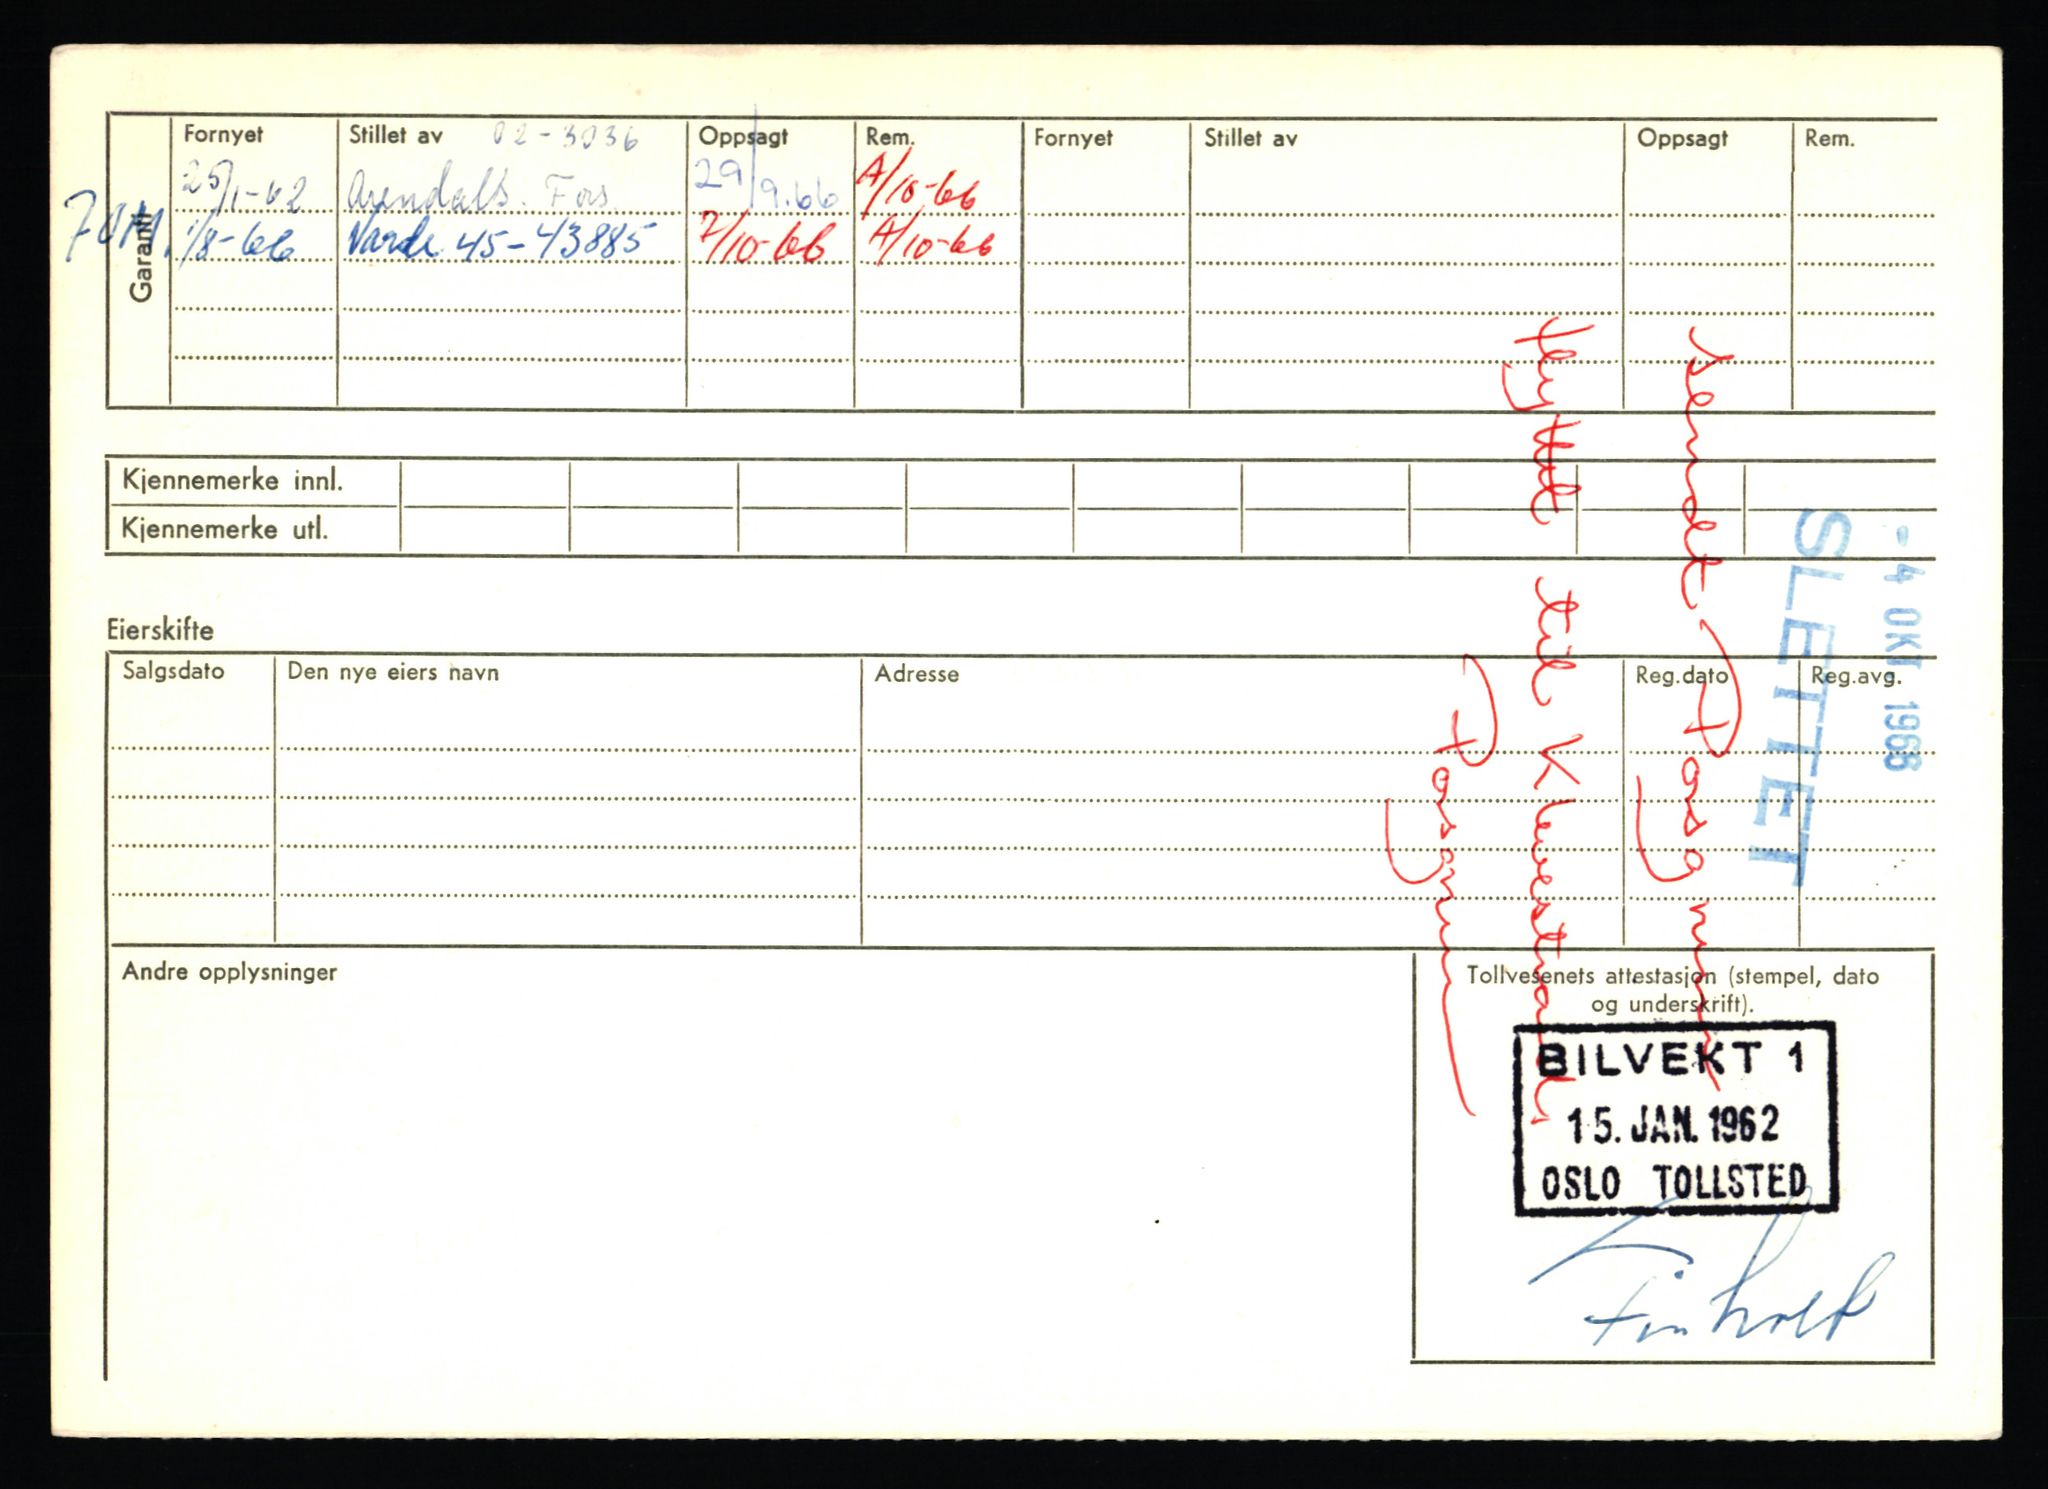 Garanti
Fornyet Stillet av 02-3036 Oppsagt Rem. Fornyet Stillet av Oppsagt Rem.
25/1-62 Arendals. Fors. 29/9.66 A/10-66
FOM. 1/8-66 Varde 45-43885 7/10-66 A/10-66
Kjennemerke innl.
Kjennemerke utl.
Eierskifte
Salgsdato Den nye eiers navn Adresse Reg.dato Reg.avg.
Andre opplysninger
Tollvesenets attestasjon (stempel, dato
og underskrift).
BILVEKT 1
15. JAN. 1962
OSLO TOLLSTED
- 4 OKT. 1966
SLETTET
sendt
flyttet til